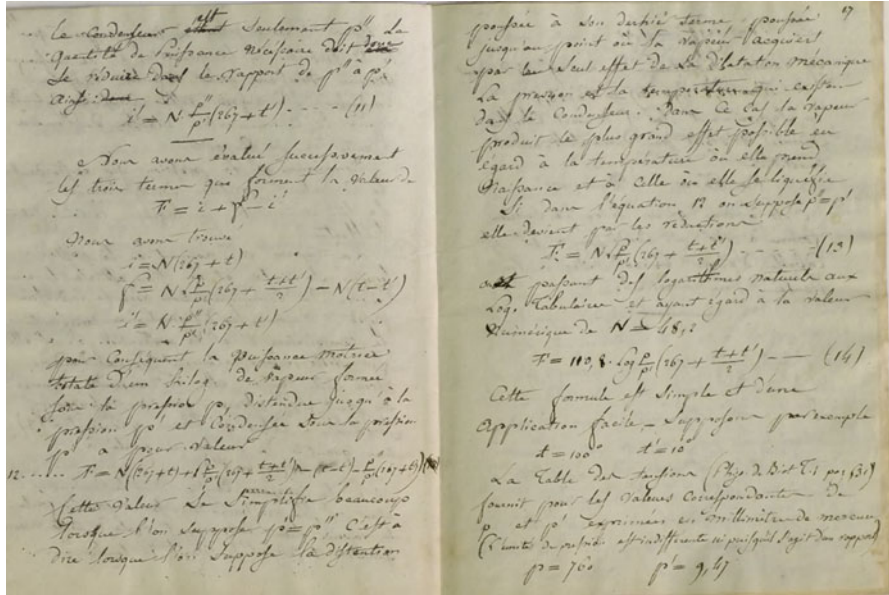 le Condenseur est seulement p'' La
quantité de Puissance necessaire doit donc
se réduire dans le rapport de p'' à p'.
ainsi
i' = N p''/p' (267 + t') - - - - (11)
Nous avons évalué successivement
les trois termes qui forment la valeur de
F = i + f - i'
Nous avons trouvé
i = N(267 + t)
f = N L p/p' (267 + (t + t')/2) - N(t - t')
i' = N p''/p' (267 + t')
par Consequent la puissance motrice
totale d'un kilog. de vapeur formée
sous la pression p, distendue jusqu'à la
pression p' et Condensée sous la pression
p'' a pour valeur
12 ..... F = N((267 + t) + L p/p' (267 + (t + t')/2) - (t - t') - p''/p' (267 + t'))
Cette valeur se simplifie beaucoup
lorsque l'on suppose p' = p'' C'est à
dire lorsque l'on suppose la distention
17
poussée à son dernié terme, poussée
jusqu'au point où la vapeur acquiert
par le seul effet de la dilatation mécanique
La pression et la température qui existent
dans le Condenseur. Dans ce cas la vapeur
produit le plus grand effet possible eu
égard à la température où elle prend
Naissance et à celle où elle se liquéfie
Si dans l'equation 12 on suppose p'' = p'
elle devient par les réductions
F = N L p/p' (267 + (t + t')/2) - - - - (13)
et passant des logarithmes naturels aux
Log. Tabulaires et ayant égard à la valeur
Numérique de N = 48,2
F = 110,8 . Log p/p' (267 + (t + t')/2) - - - (14)
Cette formule est simple et d'une
application facile - Supposons par exemple
t = 100° t' = 10°
La Table des tensions (Phys. de Biot T. 1 pag 531)
fournit pour les valeurs Correspondantes de
p et p' exprimées en millimètre de mercure
(l'unité de pression est indifférente ici puisqu'il s'agit d'un rapport)
p = 760 p' = 9,47